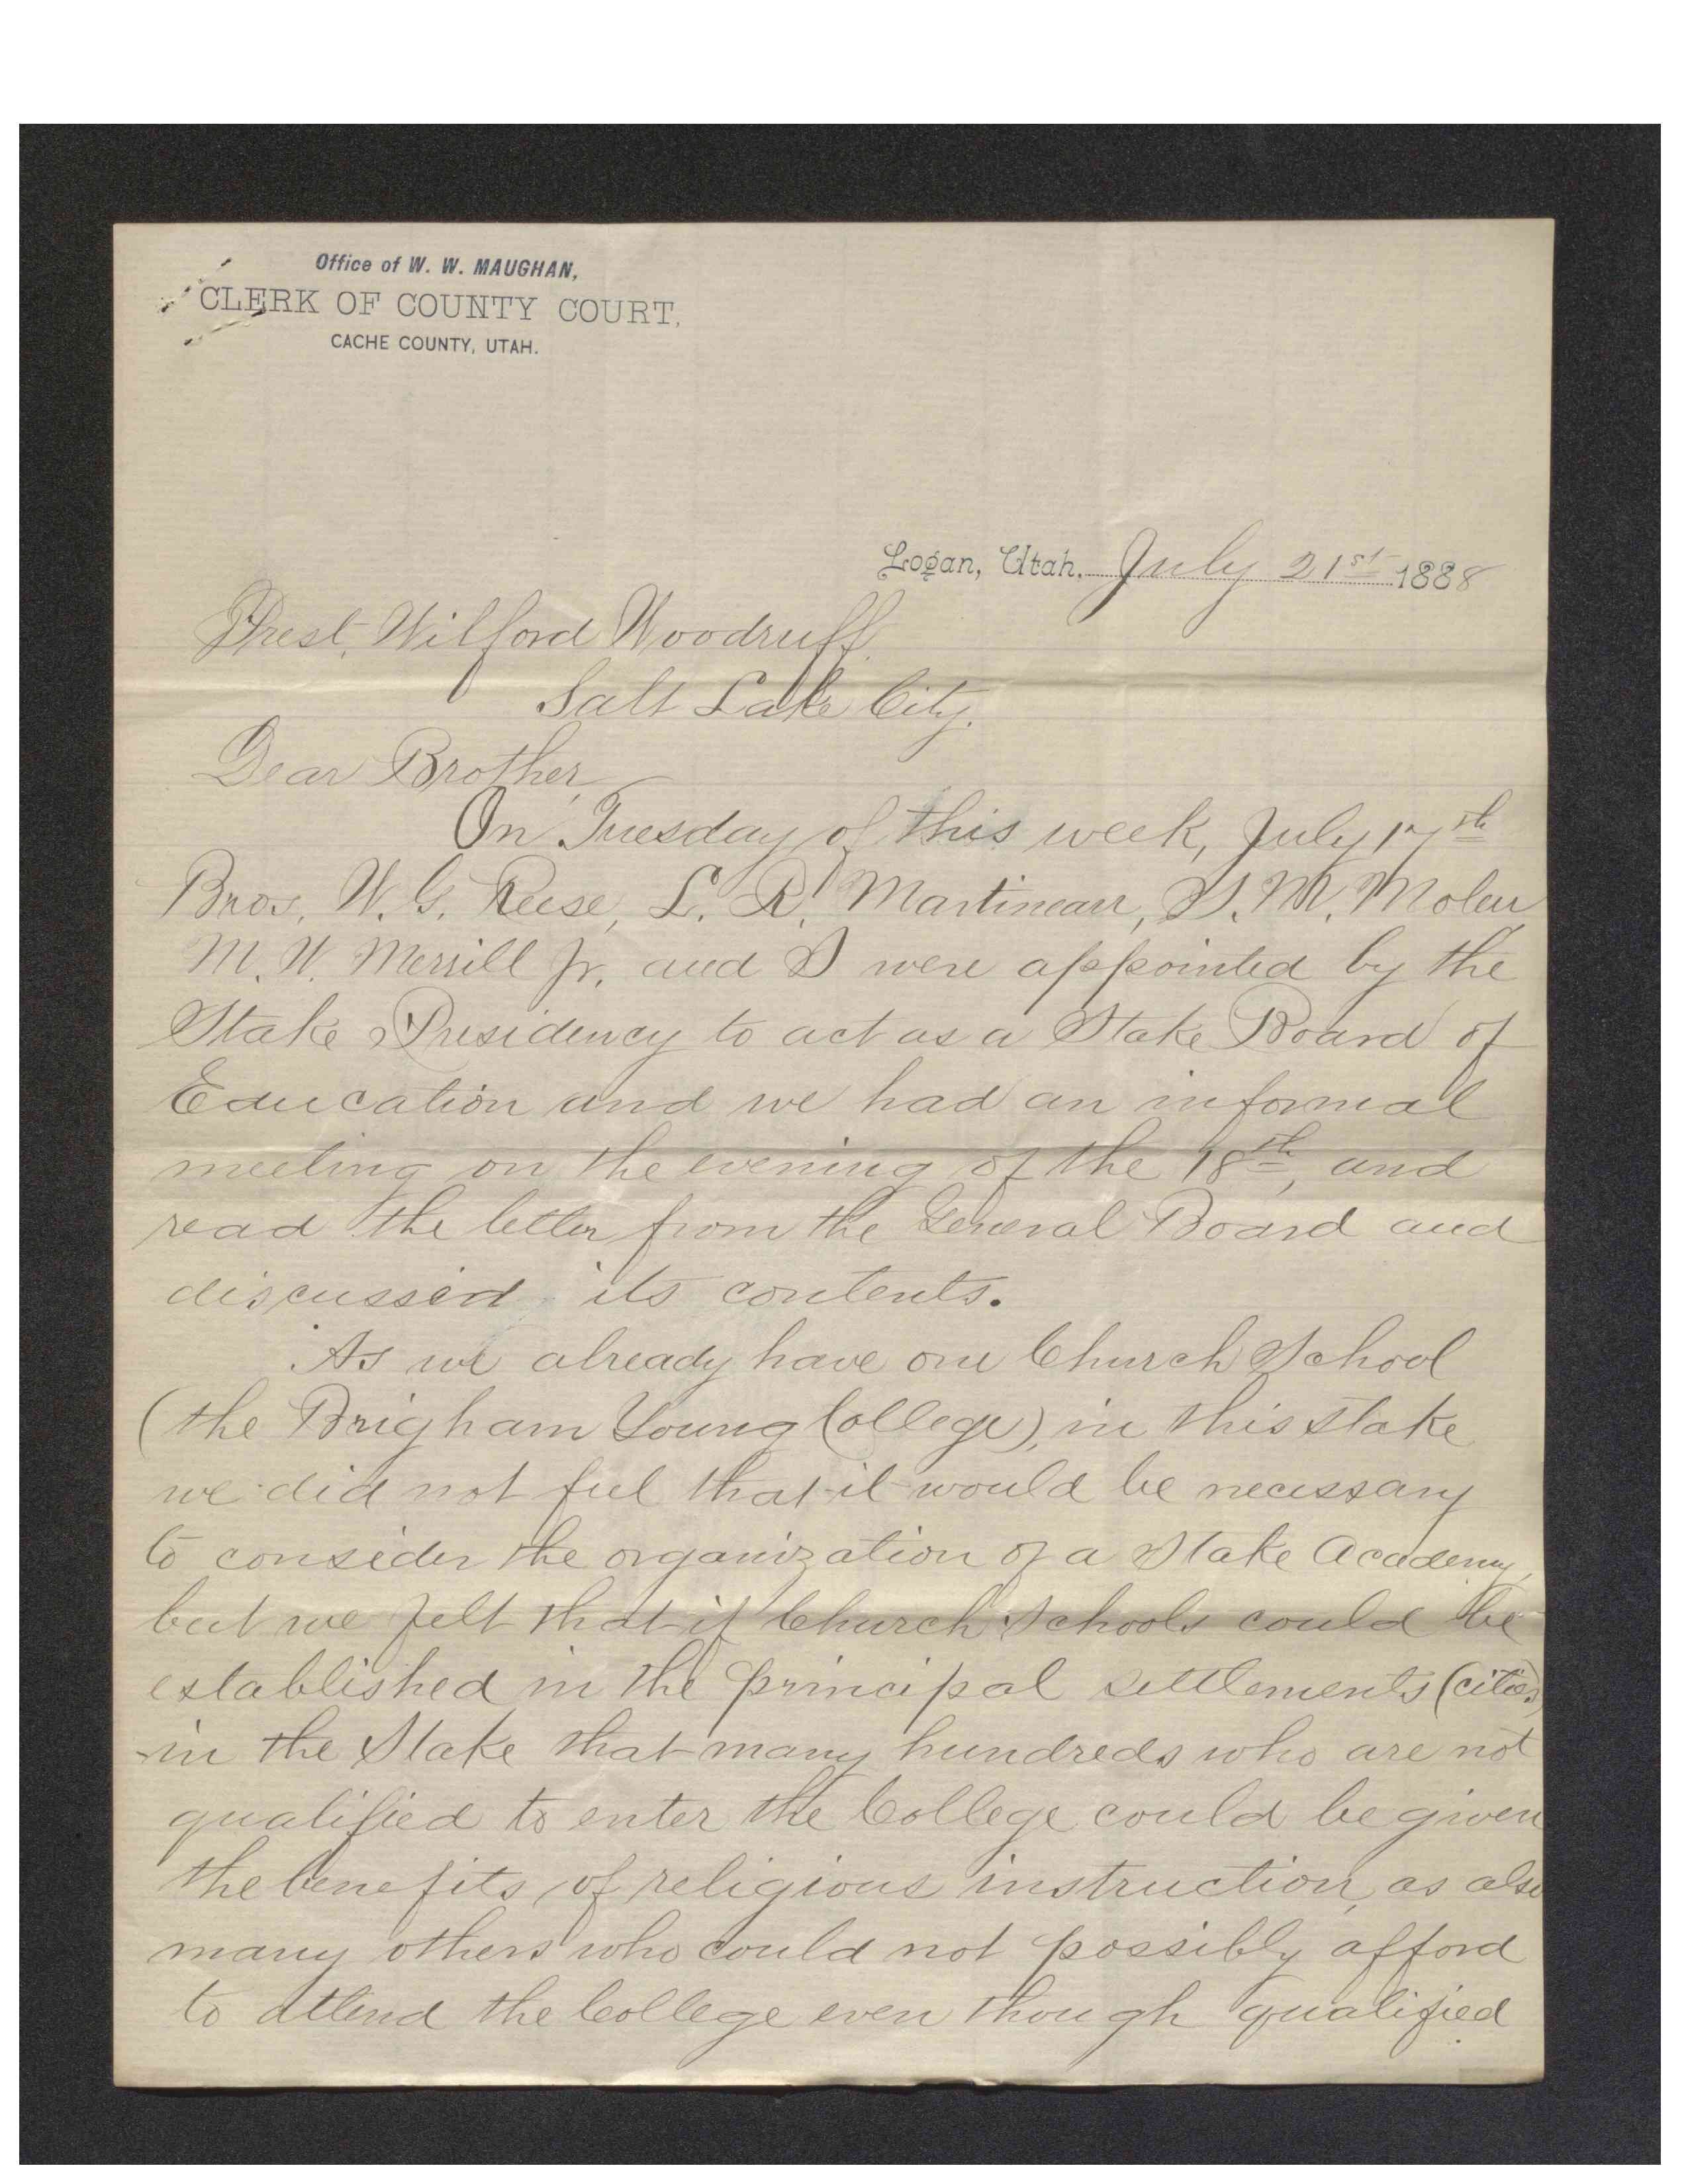 Office of W. W. MAUGHAN,
CLERK OF COUNTY COURT,
CACHE COUNTY, UTAH.
Logan, Utah, July 21st 1888
Prest. Wilford Woodruff.
Salt Lake City.
Dear Brother,
On Tuesday of this week, July 17th
Bros. W. G. Reese, L. R. Martineau, S. M. Molen
M. W. Merrill Jr. and I were appointed by the
Stake Presidency to act as a Stake Board of
Education and we had an informal
meeting on the evening of the 18th, and
read the letter from the General Board and
discussed its contents.
As we already have one Church School
(the Brigham Young College), in this stake
we did not feel that it would be necessary
to consider the organization of a Stake Academy,
but we felt that if Church Schools could be
established in the principal settlements (cities)
in the Stake that many hundreds who are not
qualified to enter the College could be given
the benefits of religious instruction, as also
many others who could not possibly afford
to attend the College even though qualified